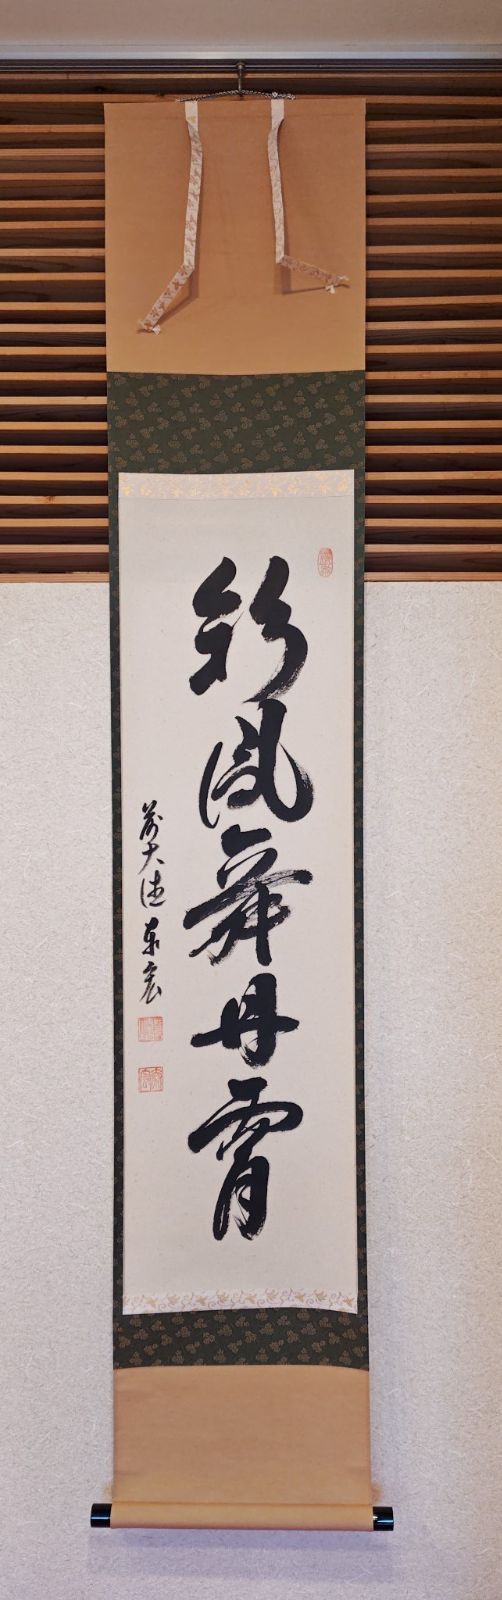 彩鳳舞丹霄
前大徳東宏